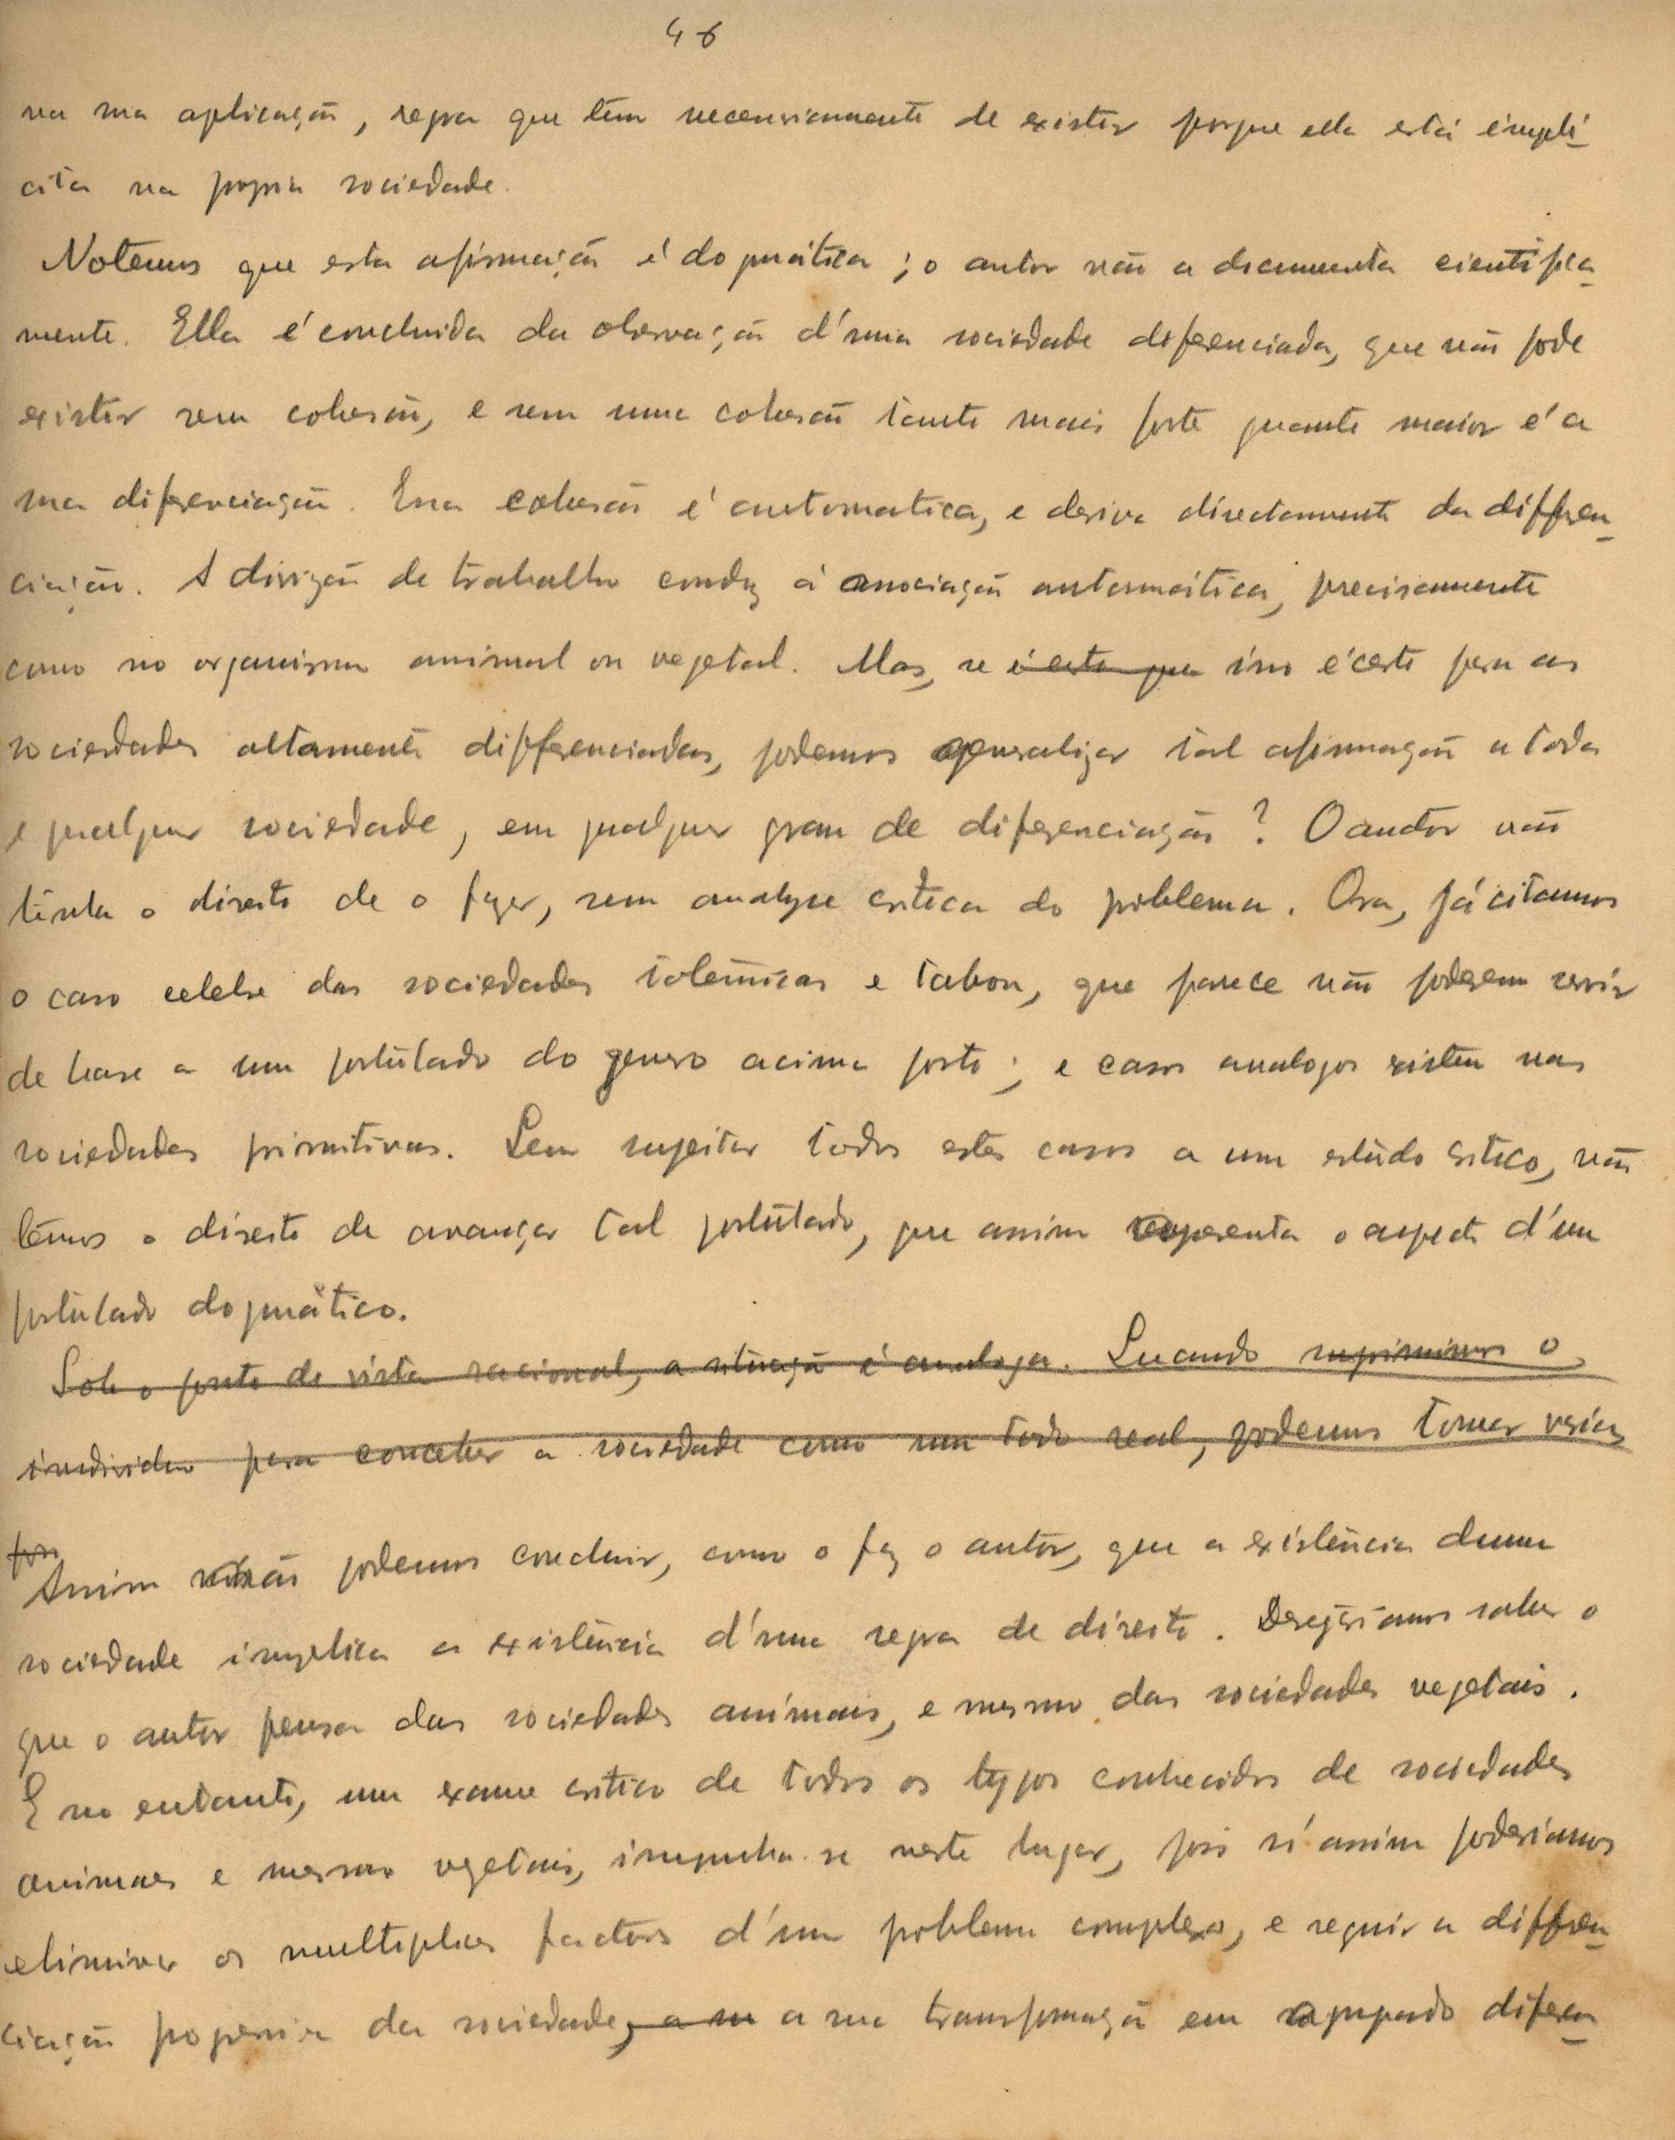 46
na sua aplicação, regra que tem necessariamente de existir porque ella está implí-
cita na propria sociedade.
Notemos que esta afirmação é dogmática; o autor não a documenta cientifica-
mente. Ella é concluida da observação d'uma sociedade diferenciada, que não pode
existir sem cohesão, e sem uma cohesão tanto mais forte quanto maior é a
sua diferenciação. Essa cohesão é automatica, e deriva directamente da differen-
ciação. A divisão de trabalho conduz á associação automática, precisamente
como no organismo animal ou vegetal. Mas, se é certo que isso é certo para as
sociedades altamente differenciadas, podemos generalizar tal afirmação a toda
e qualquer sociedade, em qualquer grau de diferenciação? O autor não
tinha o direito de o fazer, sem analyse critica do problema. Ora, já citamos
o caso celebre das sociedades totémicas e tabou, que parece não poderem servir
de base a um postulado do genero acima posto; e casos analogos existem nas
sociedades primitivas. Sem sujeitar todos estes casos a um estudo critico, não
temos o direito de avançar tal postulado, que assim representa o aspecto d'um
postulado dogmático.
Sob o ponto de vista racional, a situação é analoga. Quando suprimimos o
individuo para conceber a sociedade como um todo real, podemos tomar varias
for
Assim não podemos concluir, como o faz o autor, que a existência duma
sociedade implica a existência d'uma regra de direito. Desejariamos saber o
que o autor pensa das sociedades animais, e mesmo das sociedades vegetais.
E no entanto, um exame critico de todos os typos conhecidos de sociedades
animaes e mesmo vegetais, impunha-se neste lugar, pois só assim poderiamos
eliminar os multiplos factores d'um problema complexo, e seguir a differen-
ciação progressiva da sociedade, a su a sua transformação em agrupado diferen-